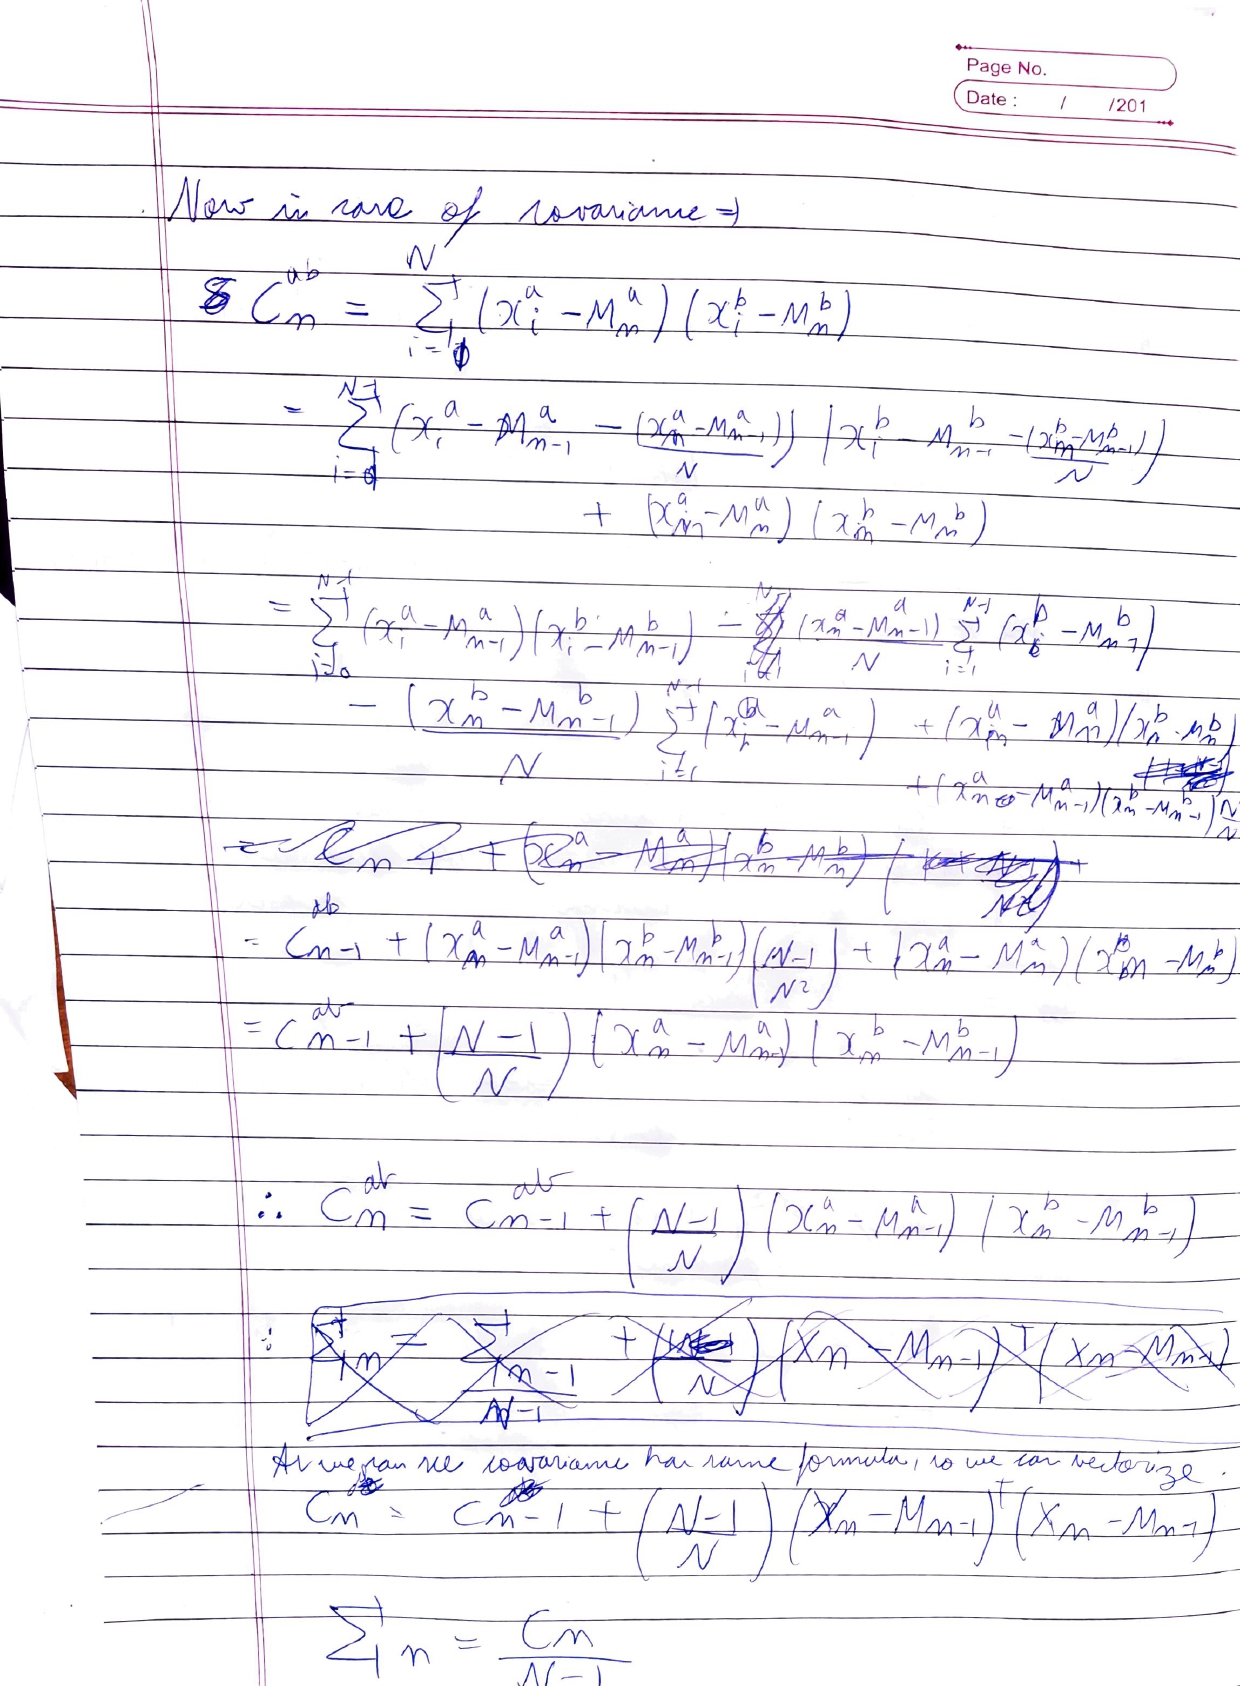 Page No.
Date : / /201
Now in case of covariance ⇒
C_n^{ab} = Σ_{i=1}^{N} (x_i^a - M_n^a) (x_i^b - M_n^b)
= Σ_{i=1}^{N-1} (x_i^a - M_{n-1}^a - (x_n^a - M_{n-1}^a)/N) (x_i^b - M_{n-1}^b - (x_n^b - M_{n-1}^b)/N)
+ (x_n^a - M_n^a) (x_n^b - M_n^b)
= Σ_{i=0}^{N-1} (x_i^a - M_{n-1}^a)(x_i^b - M_{n-1}^b) - (x_n^a - M_{n-1}^a)/N Σ_{i=1}^{N-1} (x_i^b - M_{n-1}^b)
- (x_n^b - M_{n-1}^b)/N Σ_{i=1}^{N-1} (x_i^a - M_{n-1}^a) + (x_n^a - M_n^a)(x_n^b - M_n^b)
+ (x_n^a - M_{n-1}^a)(x_n^b - M_{n-1}^b)
= C_{n-1}^{ab} + (x_n^a - M_{n-1}^a)(x_n^b - M_{n-1}^b)((N-1)/N^2) + (x_n^a - M_n^a)(x_n^b - M_n^b)
= C_{n-1}^{ab} + ((N-1)/N) (x_n^a - M_{n-1}^a) (x_n^b - M_{n-1}^b)
∴ C_n^{ab} = C_{n-1}^{ab} + ((N-1)/N) (x_n^a - M_{n-1}^a) (x_n^b - M_{n-1}^b)
∴ Σ_n = Σ_{n-1}/(N-1) + (X_n - M_{n-1})^T (X_n - M_{n-1})
As we can see covariance has same formula, so we can vectorize.
C_n = C_{n-1} + ((N-1)/N) (X_n - M_{n-1})^T (X_n - M_{n-1})
Σ_n = C_n/(N-1)